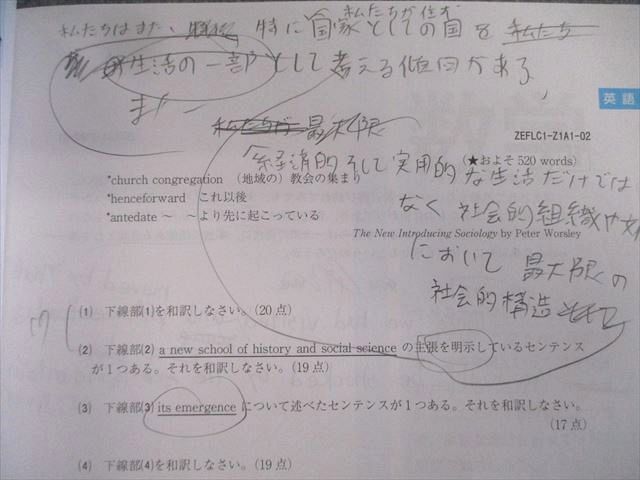 私たちが住む
私たちはまた、特に国家としての国を 私たち
の生活の一部として考える傾向がある
また
英語
私たちが 最大限
ZEFLC1-Z1A1-02
「経済的そして実用的
(★およそ 520 words)
な生活だけでは
*church congregation (地域の) 教会の集まり
*henceforward これ以後
なく 社会的組織や
*antedate ～ ～より先に起こっている
The New Introducing Sociology by Peter Worsley
において 最大限の
社会的構造
(1) 下線部(1)を和訳しなさい。(20 点)
(2) 下線部(2) a new school of history and social science の主張を明示しているセンテンス
が1つある。それを和訳しなさい。(19 点)
(3) 下線部(3) its emergence について述べたセンテンスが1つある。それを和訳しなさい。
(17 点)
(4) 下線部(4)を和訳しなさい。(19 点)